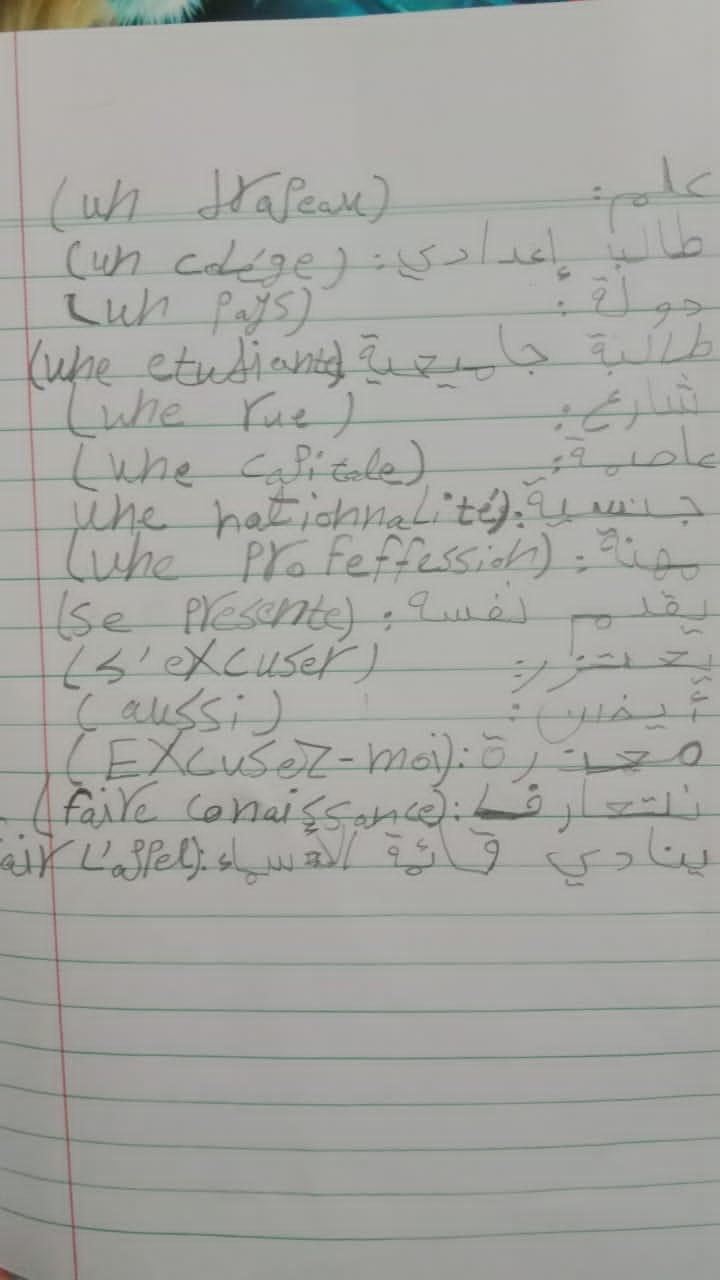 علم: (un drapeau)
طالب إعدادي: (un colége)
دولة: (un pays)
طالبة جامعية (une etudiante)
شارع: (une rue)
عاصمة: (une capitale)
جنسية: une nationnalité)
مهنة: (une profeffession)
يقدم نفسه: (se presente)
يعتذر: (s'excuser)
أيضا: (aussi)
معذرة: (EXcusez-moi)
نتعارف: (faire conaissance)
ينادي قائمة الأسماء: air L'appel)